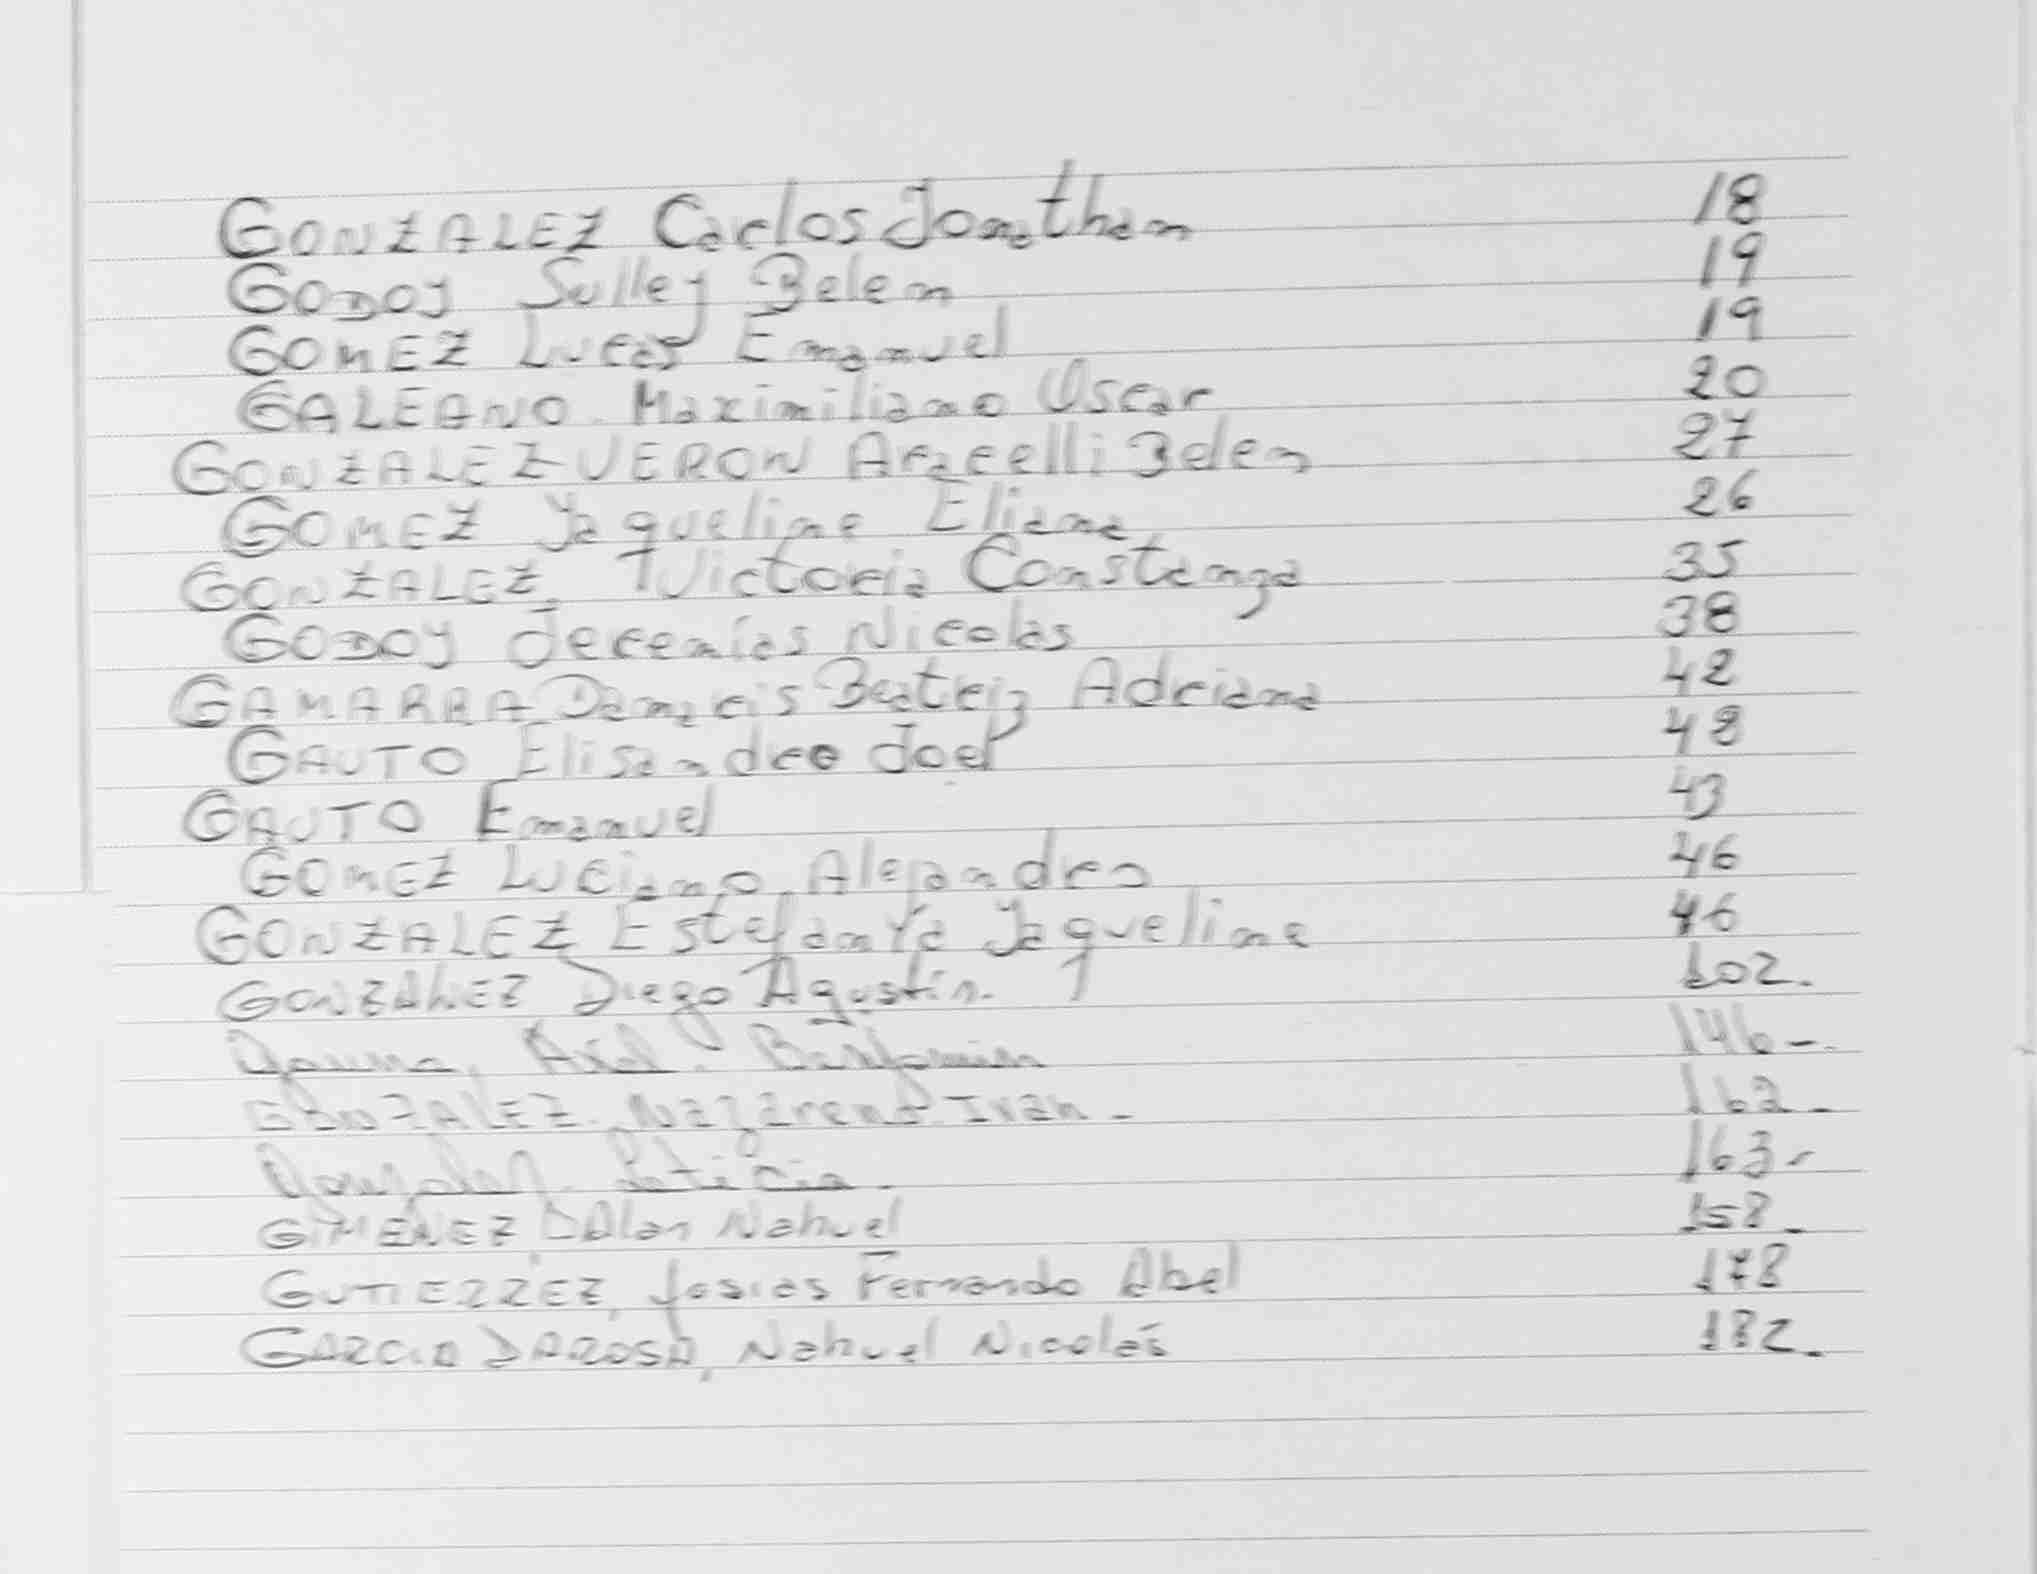 GONZALEZ Carlos Jonathan 18
GODOY Sulley Belem 19
GOMEZ Lucas Emanuel 19
GALEANO. Maximiliano Oscar 20
GONZALEZ VERON Aracelli Belen 27
GOMEZ Yaqueline Eliana 26
GONZALEZ, Victoria Constanza 35
GODOY Jeremías Nicolas 38
GAMARRA Damaris Beatriz Adriana 42
GAUTO Elisandro Joel 48
GAUTO Emanuel 43
GOMEZ Luciano Alejandro 46
GONZALEZ Estefanía Yaqueline 46
GONZALEZ Diego Agustín. 102.
Axel Benjamin 146-.
GONZALEZ. Nazareno Ivan - 162.
Gonzalez. Leticia. 163-
GIMENEZ Alan Nahuel 158.
GUTIERREZ, Josias Fernando Abel 178
GARCIA DAROSA, Nahuel Nicolás 182.